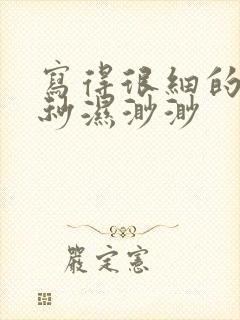 寫得很細的
秒濕渺渺
嚴定憲